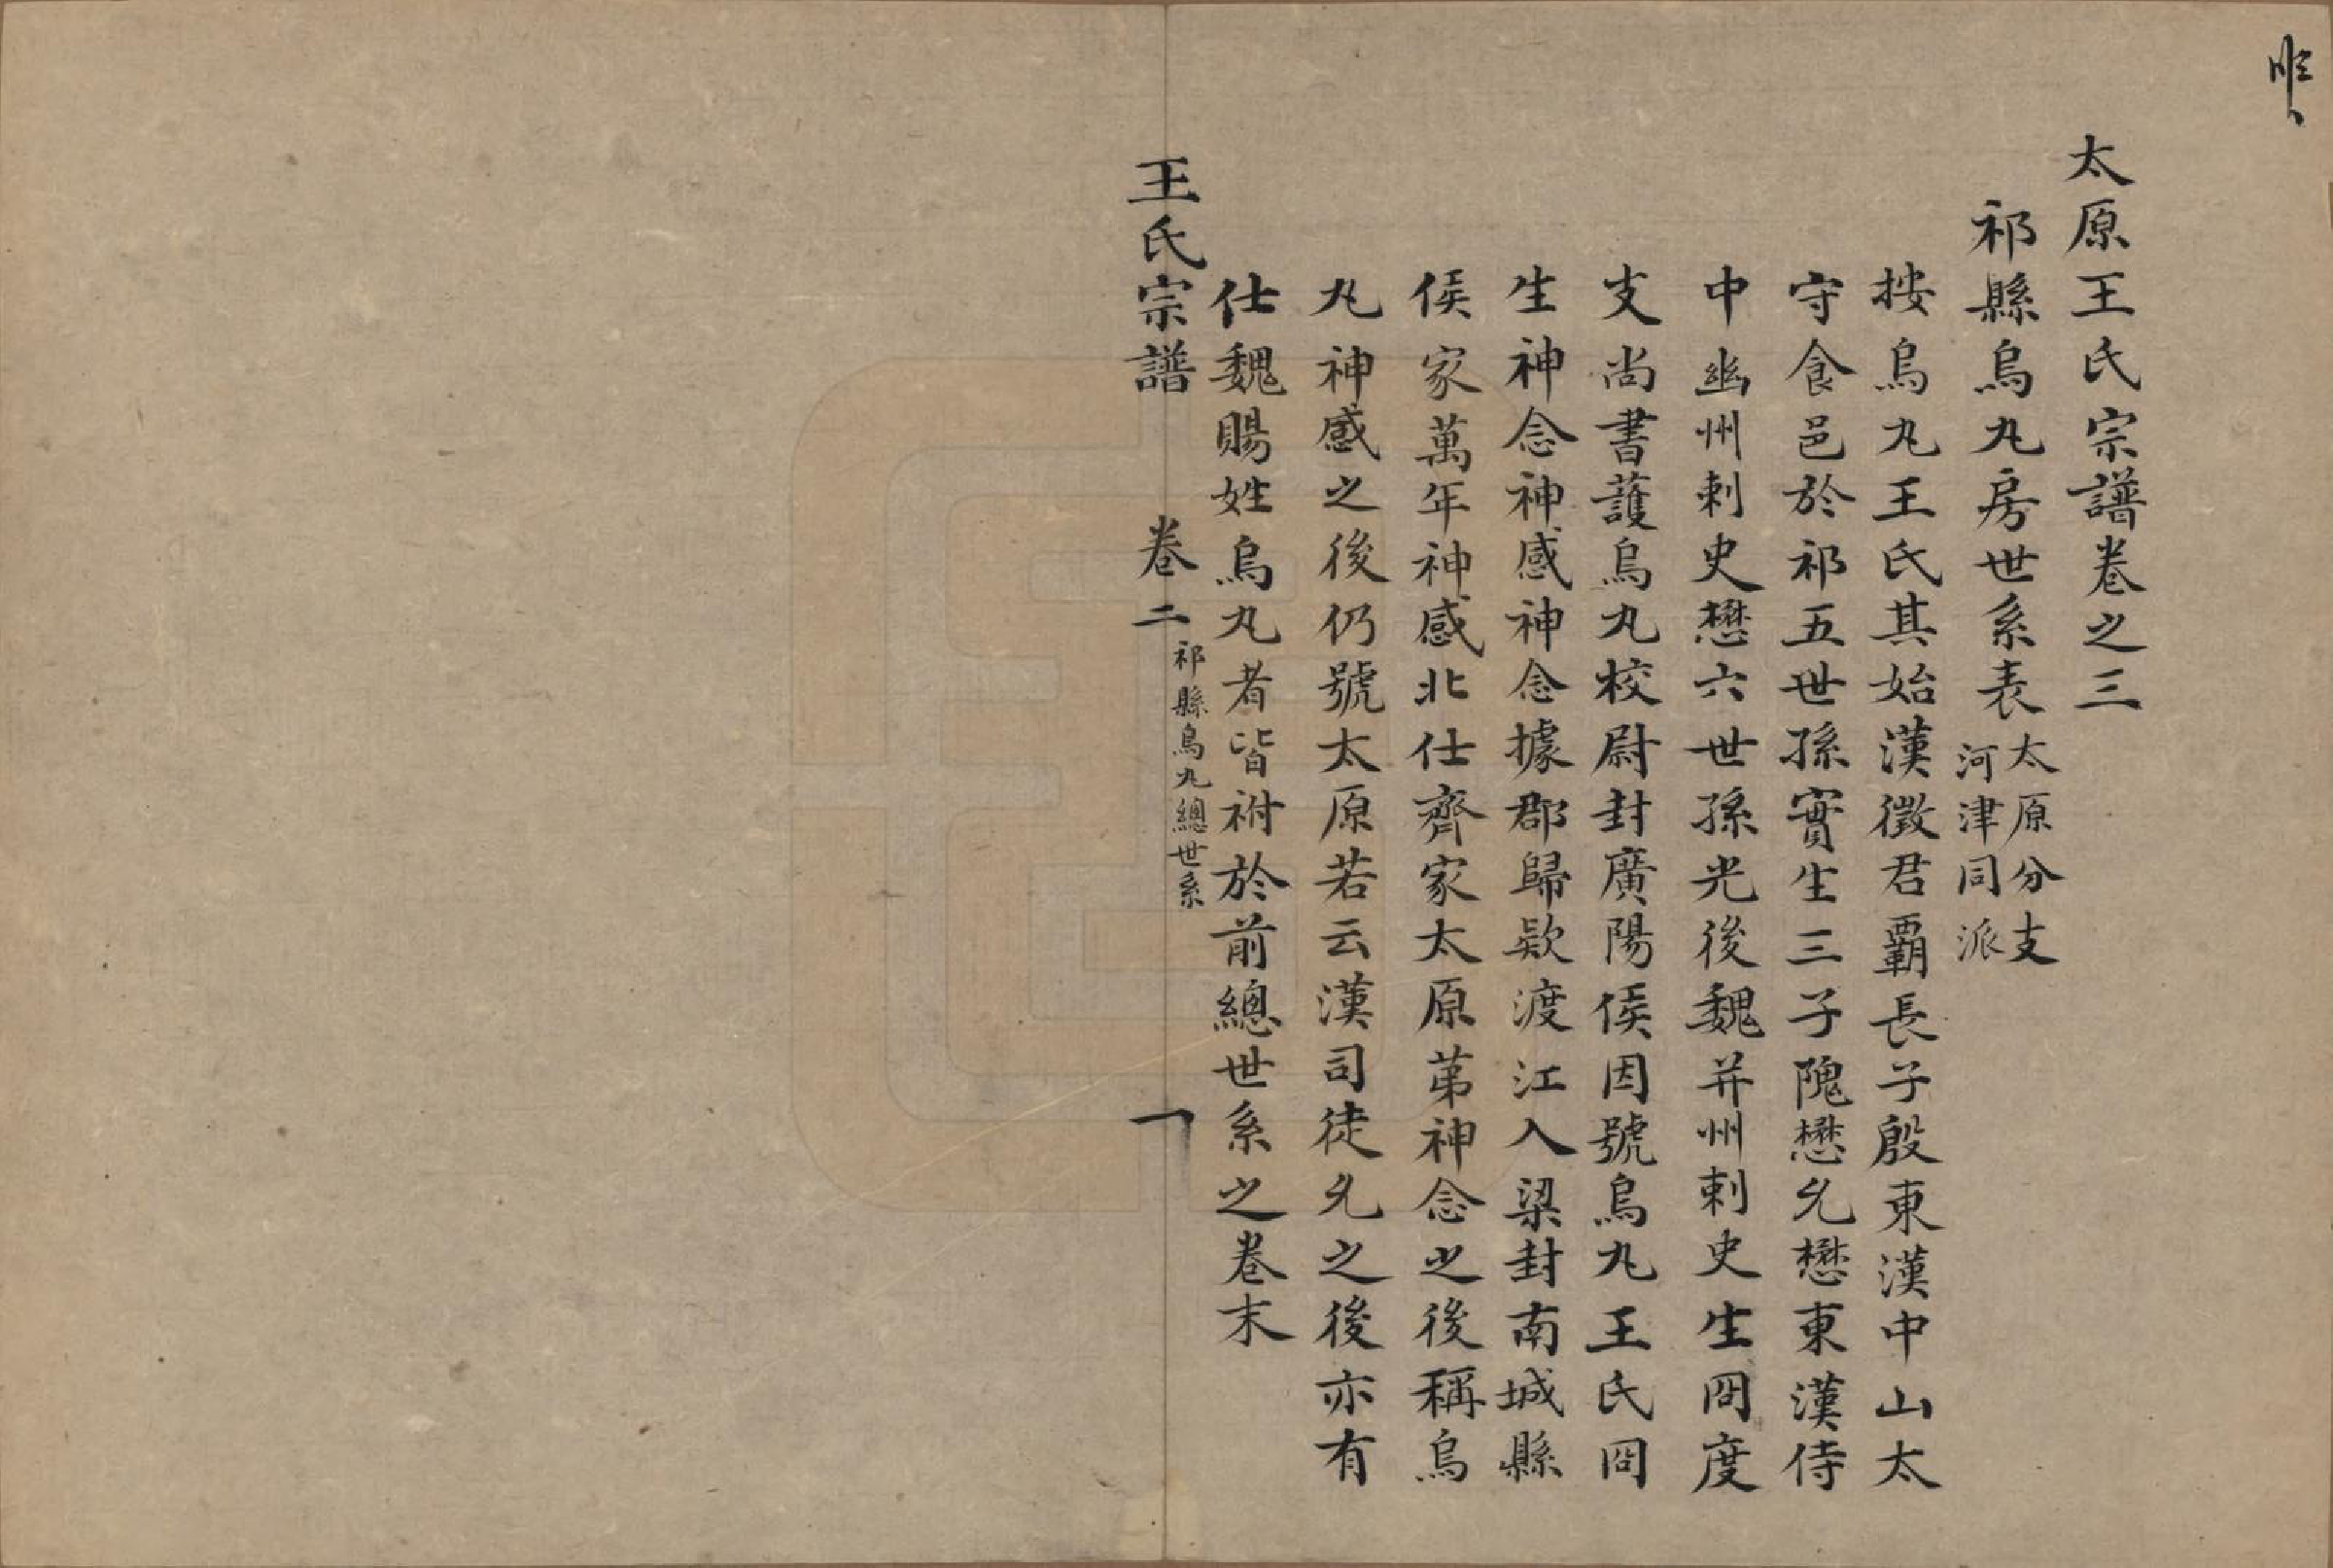 太原王氏宗譜卷之三
祁縣烏丸房世系表
太原分支
河津同派
按烏丸王氏其始漢徵君霸長子殷東漢中山太
守食邑於祁五世孫實生三子隗懋允懋東漢侍
中幽州刺史懋六世孫光後魏并州刺史生冏度
支尚書護烏丸校尉封廣陽侯因號烏丸王氏冏
生神念神感神念據郡歸欵渡江入梁封南城縣
侯家萬年神感北仕齊家太原第神念之後稱烏
丸神感之後仍號太原若云漢司徒允之後亦有
仕魏賜姓烏丸者皆祔於前總世系之卷末
王氏宗譜
卷二
祁縣烏丸總世系
一